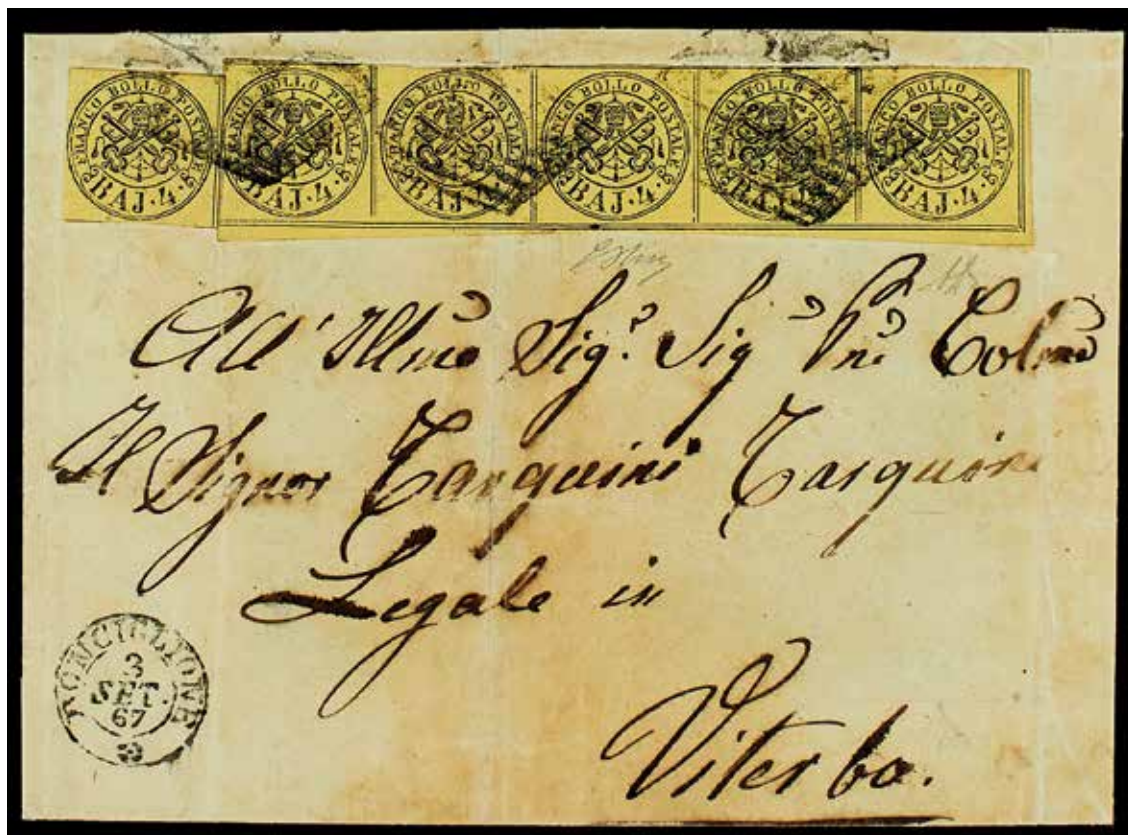 FRANCO BOLLO POSTALE BAJ. 4. 8
FRANCO BOLLO POSTALE BAJ. 4. 8
FRANCO BOLLO POSTALE BAJ. 4. 8
FRANCO BOLLO POSTALE BAJ. 4. 8
FRANCO BOLLO POSTALE BAJ. 4. 8
FRANCO BOLLO POSTALE BAJ. 4. 8
All' Illmo Sig.r Sig Colmo
Il Signor Tarquini Tarquini
Legale in
Viterbo.
RONCIGLIONE
3
SET.
67